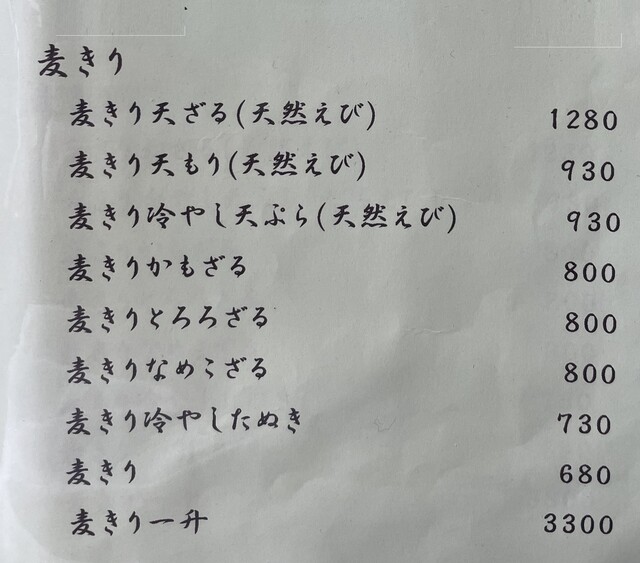 麦きり
麦きり天ざる(天然えび) 1280
麦きり天もり(天然えび) 930
麦きり冷やし天ぷら(天然えび) 930
麦きりかもざる 800
麦きりとろろざる 800
麦きりなめこざる 800
麦きり冷やしたぬき 730
麦きり 680
麦きり一升 3300